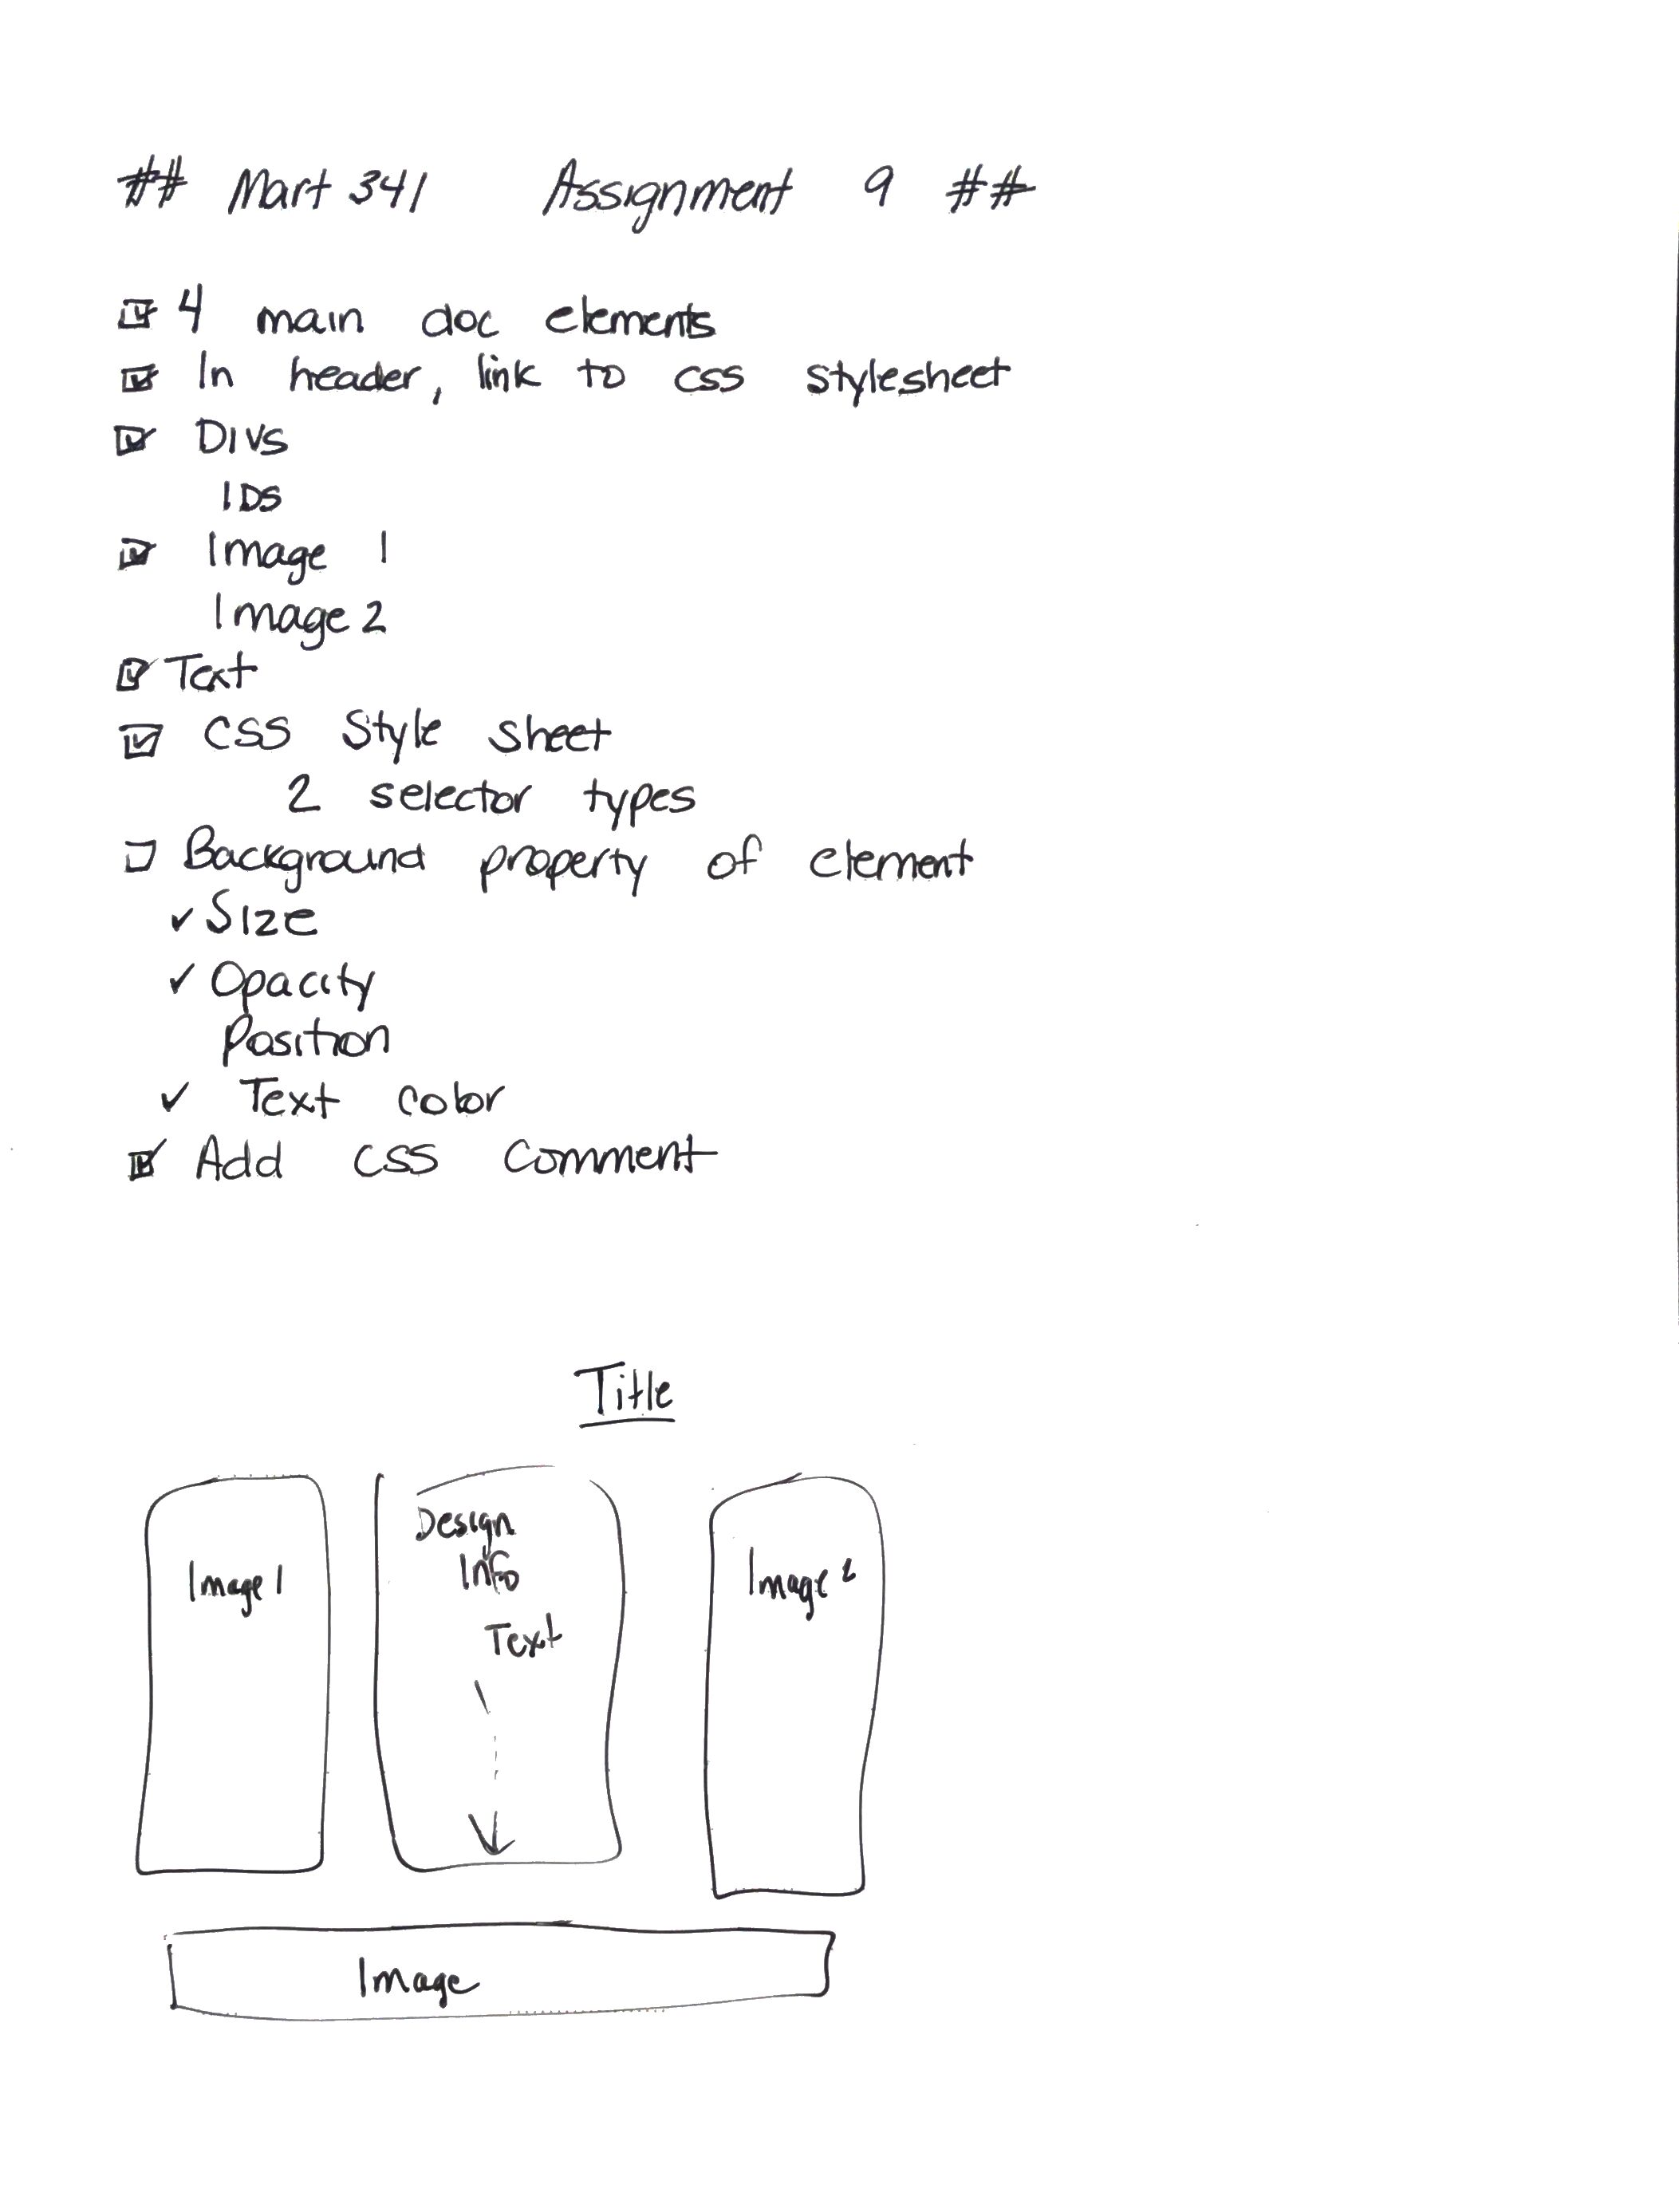 ## Mart 341 Assignment 9 ##
☑ 4 main doc elements
☑ In header, link to css stylesheet
☑ Divs
IDs
☑ Image 1
Image 2
☑ Text
☑ CSS Style sheet
2 selector types
☐ Background property of element
✓ Size
✓ Opacity
Position
✓ Text color
☑ Add CSS Comment
Title
Image 1
Design
Info
Text
Image 2
Image